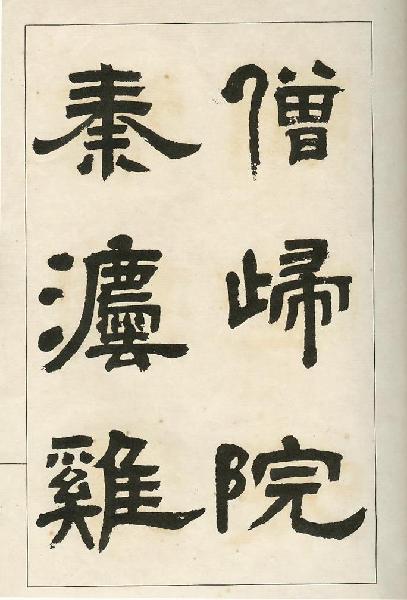 僧歸院
秦灋雞